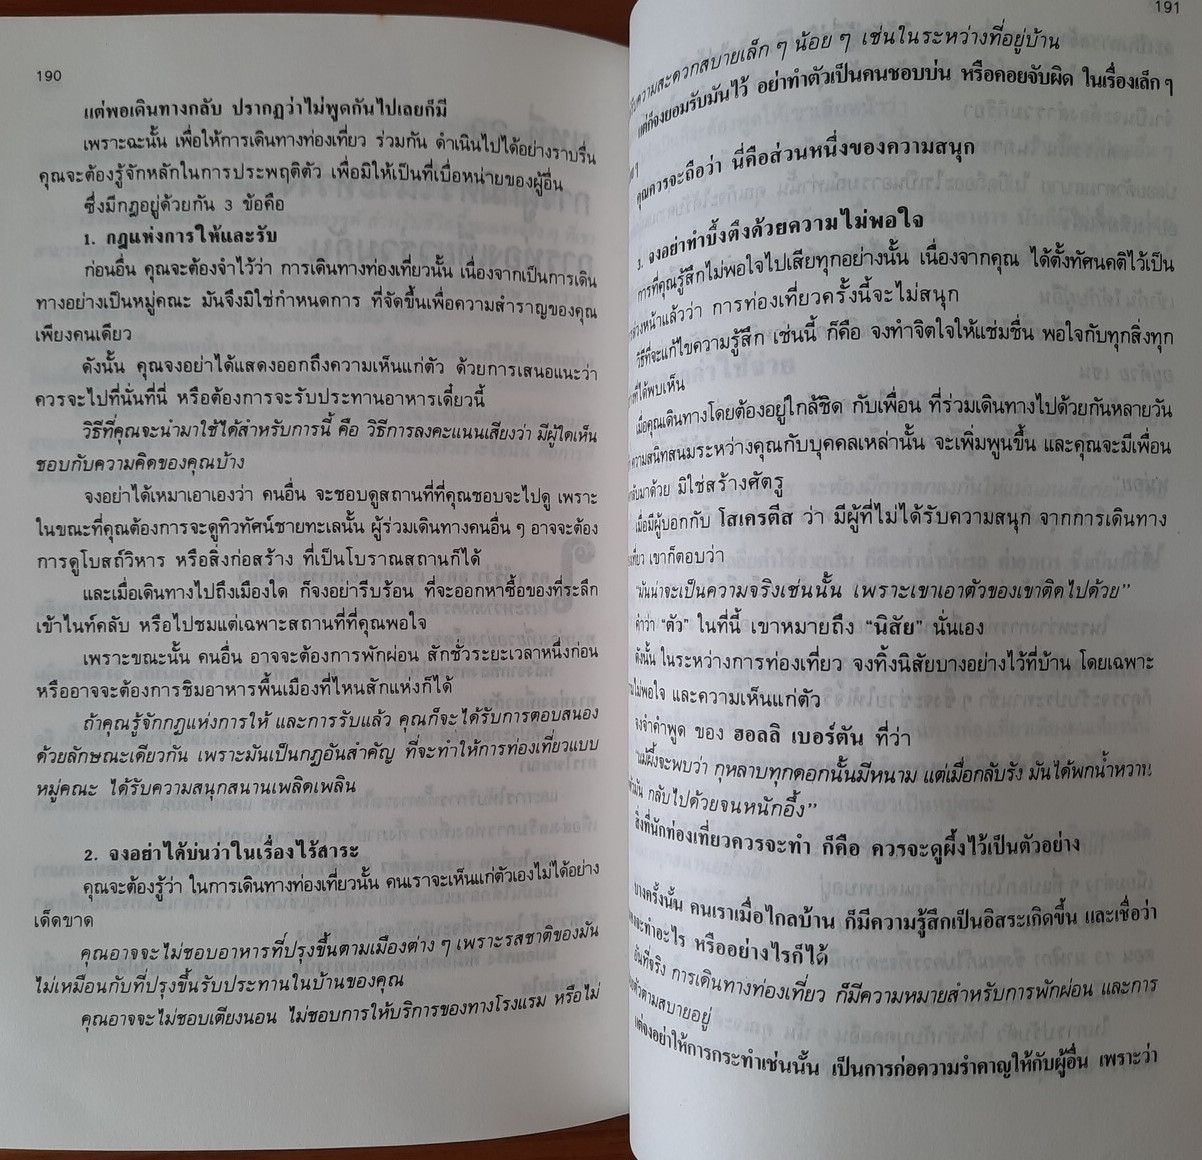 190
แต่พอเดินทางกลับ ปรากฏว่าไม่พูดกันไปเลยก็มี
เพราะฉะนั้น เพื่อให้การเดินทางท่องเที่ยว ร่วมกัน ดำเนินไปได้อย่างราบรื่น
คุณจะต้องรู้จักหลักในการประพฤติตัว เพื่อมิให้เป็นที่เบื่อหน่ายของผู้อื่น
ซึ่งมีกฎอยู่ด้วยกัน 3 ข้อคือ
1. กฎแห่งการให้และรับ
ก่อนอื่น คุณจะต้องจำไว้ว่า การเดินทางท่องเที่ยวนั้น เนื่องจากเป็นการเดิน
ทางอย่างเป็นหมู่คณะ มันจึงมิใช่กำหนดการ ที่จัดขึ้นเพื่อความสำราญของคุณ
เพียงคนเดียว
ดังนั้น คุณจงอย่าได้แสดงออกถึงความเห็นแก่ตัว ด้วยการเสนอแนะว่า
ควรจะไปที่นั่นที่นี่ หรือต้องการจะรับประทานอาหารเดี๋ยวนี้
วิธีที่คุณจะนำมาใช้ได้สำหรับการนี้ คือ วิธีการลงคะแนนเสียงว่า มีผู้ใดเห็น
ชอบกับความคิดของคุณบ้าง
จงอย่าได้เหมาเอาเองว่า คนอื่น จะชอบดูสถานที่ที่คุณชอบจะไปดู เพราะ
ในขณะที่คุณต้องการจะดูทิวทัศน์ชายทะเลนั้น ผู้ร่วมเดินทางคนอื่น ๆ อาจจะต้อง
การดูโบสถ์วิหาร หรือสิ่งก่อสร้าง ที่เป็นโบราณสถานก็ได้
และเมื่อเดินทางไปถึงเมืองใด ก็จงอย่ารีบร้อน ที่จะออกหาซื้อของที่ระลึก
เข้าไนท์คลับ หรือไปชมแต่เฉพาะสถานที่ที่คุณพอใจ
เพราะขณะนั้น คนอื่น อาจจะต้องการพักผ่อน สักชั่วระยะเวลาหนึ่งก่อน
หรืออาจจะต้องการชิมอาหารพื้นเมืองที่ไหนสักแห่งก็ได้
ถ้าคุณรู้จักกฎแห่งการให้ และการรับแล้ว คุณก็จะได้รับการตอบสนอง
ด้วยลักษณะเดียวกัน เพราะมันเป็นกฎอันสำคัญ ที่จะทำให้การท่องเที่ยวแบบ
หมู่คณะ ได้รับความสนุกสนานเพลิดเพลิน
2. จงอย่าได้บ่นว่าในเรื่องไร้สาระ
คุณจะต้องรู้ว่า ในการเดินทางท่องเที่ยวนั้น คนเราจะเห็นแก่ตัวเองไม่ได้อย่าง
เด็ดขาด
คุณอาจจะไม่ชอบอาหารที่ปรุงขึ้นตามเมืองต่าง ๆ เพราะรสชาติของมัน
ไม่เหมือนกับที่ปรุงขึ้นรับประทานในบ้านของคุณ
คุณอาจจะไม่ชอบเตียงนอน ไม่ชอบการให้บริการของทางโรงแรม หรือไม่
191
ความสะดวกสบายเล็ก ๆ น้อย ๆ เช่นในระหว่างที่อยู่บ้าน
แต่ก็จงยอมรับมันไว้ อย่าทำตัวเป็นคนชอบบ่น หรือคอยจับผิด ในเรื่องเล็ก ๆ
คุณควรจะถือว่า นี่คือส่วนหนึ่งของความสนุก
3. จงอย่าทำบึ้งตึงด้วยความไม่พอใจ
การที่คุณรู้สึกไม่พอใจไปเสียทุกอย่างนั้น เนื่องจากคุณ ได้ตั้งทัศนคติไว้เป็น
หน้าแล้วว่า การท่องเที่ยวครั้งนี้จะไม่สนุก
วิธีที่จะแก้ไขความรู้สึก เช่นนี้ ก็คือ จงทำจิตใจให้แช่มชื่น พอใจกับทุกสิ่งทุก
ที่ได้พบเห็น
เมื่อคุณเดินทางโดยต้องอยู่ใกล้ชิด กับเพื่อน ที่ร่วมเดินทางไปด้วยกันหลายวัน
ความสนิทสนมระหว่างคุณกับบุคคลเหล่านั้น จะเพิ่มพูนขึ้น และคุณจะมีเพื่อน
กลับมาด้วย มิใช่สร้างศัตรู
เมื่อมีผู้บอกกับ โสเครตีส ว่า มีผู้ที่ไม่ได้รับความสนุก จากการเดินทาง
เที่ยว เขาก็ตอบว่า
“มันน่าจะเป็นความจริงเช่นนั้น เพราะเขาเอาตัวของเขาติดไปด้วย”
คำว่า “ตัว” ในที่นี้ เขาหมายถึง “นิสัย” นั่นเอง
ดังนั้น ในระหว่างการท่องเที่ยว จงทิ้งนิสัยบางอย่างไว้ที่บ้าน โดยเฉพาะ
ไม่พอใจ และความเห็นแก่ตัว
จงจำคำพูด ของ ฮอลลิ เบอร์ตัน ที่ว่า
“แม่ผึ้งจะพบว่า กุหลาบทุกดอกนั้นมีหนาม แต่เมื่อกลับรัง มันได้พกน้ำหวาน
กลับไปด้วยจนหนักอึ้ง”
สิ่งที่นักท่องเที่ยวควรจะทำ ก็คือ ควรจะดูผึ้งไว้เป็นตัวอย่าง
บางครั้งนั้น คนเราเมื่อไกลบ้าน ก็มีความรู้สึกเป็นอิสระเกิดขึ้น และเชื่อว่า
จะทำอะไร หรืออย่างไรก็ได้
อันที่จริง การเดินทางท่องเที่ยว ก็มีความหมายสำหรับการพักผ่อน และการ
ตัวตามสบายอยู่
แต่จงอย่าให้การกระทำเช่นนั้น เป็นการก่อความรำคาญให้กับผู้อื่น เพราะว่า